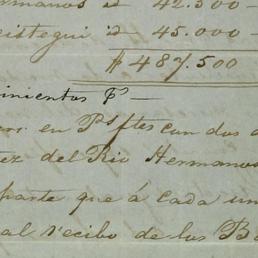 rmanos id 42.500 —
eistegui id 45.000 —
$ 487.500
inientos ps —
en Ps ftes con dos
ez del Rio Hermanos
parte que á cada un
al recibo de los B